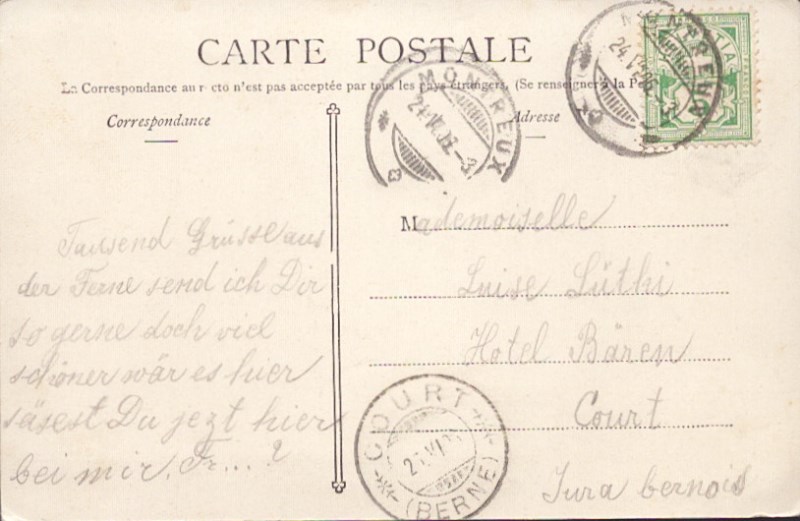 CARTE POSTALE
La Correspondance au recto n'est pas acceptée par tous les pays étrangers. (Se renseigner à la
Correspondance
Adresse
MONTREUX
24.VI.
MONTREUX
24.VI.
Tausend Grüsse aus
der Ferne send ich Dir
so gerne doch viel
schöner wär es hier
säsest Du jezt hier
bei mir. Fr....?
Mademoiselle
Luise Lüthi
Hotel Bären
Court
Jura bernois
COURT
(BERNE)